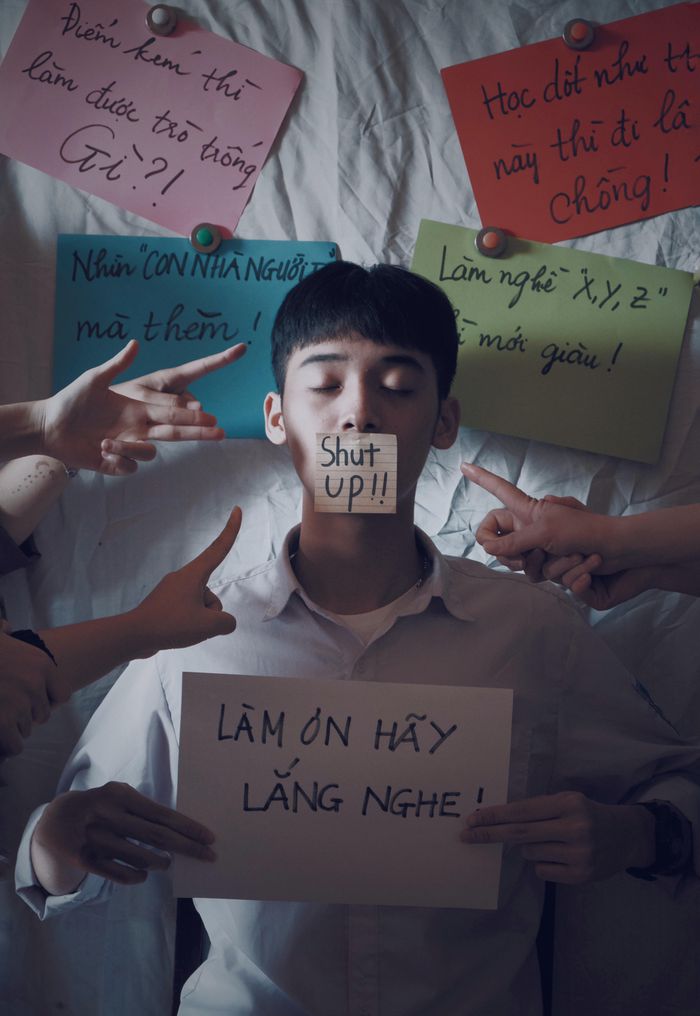 Điểm kém thì
làm được trò trống
Gì?!
Học dốt như
này thì đi lấ
chồng!
Nhìn "CON NHÀ NGƯỜI
mà thèm!
Làm nghề "X,Y,Z"
mới giàu!
Shut
UP!!
LÀM ƠN HÃY
LẮNG NGHE!